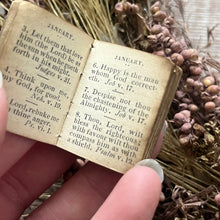 JANUARY.
3. Let them that love
him (the Lord) be as
the sun when he goeth
forth in his might.
Judges v. 31.
4. Think upon me,
my God.
Neh. v. 19.
Lord, rebuke me
thine anger.
Ps. vi. 1.
JANUARY.
6. Happy is the man
whom God correct-
eth. Job v. 17.
7. Despise not thou
the chastening of the
Almighty. Job v. 17.
8. Thou, Lord, wilt
bless the righteous;
with favour wilt thou
compass him as with
a shield. Psalm v. 12.